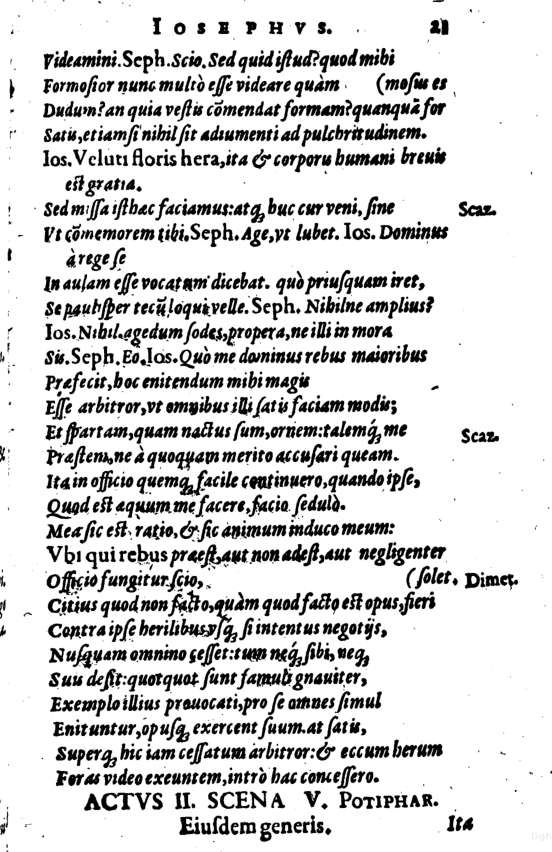 IOSEPHVS. 21
Videamini. Seph. Scio. Sed quid iſtud? quod mihi
Formoſior nunc multò eſſe videare quàm (moſus es
Dudum? an quia veſtis cõmendat formam? quanquã for
Satis, etiamſi nihil ſit adiumenti ad pulchritudinem.
Ios. Veluti floris hera, ita & corporis humani breuis
eſt gratia.
Sed miſſa iſthæc faciamus: atq; huc cur veni, ſine Scaz.
Vt cõmemorem tibi. Seph. Age, vt lubet. Ios. Dominus
à rege ſe
In aulam eſſe vocatum dicebat. quò priuſquam iret,
Se pauliſper tecũ loqui velle. Seph. Nihilne amplius?
Ios. Nihil. agedum ſodes, propera, ne illi in mora
Sis. Seph. Eo. Ios. Quò me dominus rebus maioribus
Præfecit, hoc enitendum mihi magis
Eſſe arbitror, vt omnibus illi ſatis faciam modis;
Et ſpartam, quam nactus ſum, ornem: talemq́; me Scaz.
Præſtem, ne à quoquam merito accuſari queam.
Ita in officio quemq; facile continuero, quando ipſe,
Quod eſt æquum me facere, facio ſedulò.
Mea ſic eſt ratio, & ſic animum induco meum:
Vbi qui rebus præeſt, aut non adeſt, aut negligenter
Officio fungitur, ſcio, (ſolet. Dimet.
Citius quod non facto, quàm quod facto eſt opus, fieri
Contra ipſe herilibus vſq; ſi intentus negotijs,
Nuſquam omnino ceſſet: tum neq́; ſibi, neq;
Suis deſit: quotquot ſunt famuli gnauiter,
Exemplo illius prouocati, pro ſe omnes ſimul
Enituntur, opuſq; exercent ſuum. at ſatis,
Superq; hic iam ceſſatum arbitror: & eccum herum
Foras video exeuntem, intrò hac conceſſero.
ACTVS II. SCENA V. POTIPHAR.
Eiuſdem generis. Ita